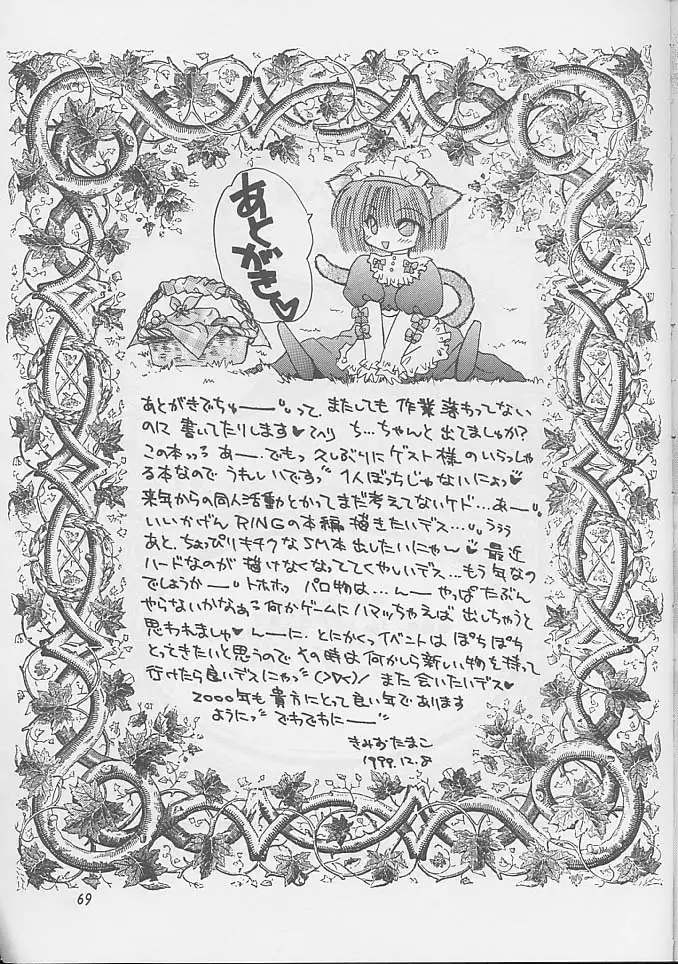 あとがき♥
あとがきでちゅーー"。って、またしても 作業 落わってない
のに 書いてたりします♥てへり ち…ちゃんと 出てましゅか?
この本っっる あー、でもっ 久しぶりに ゲスト様 のいらっしゃ
る本なので うれしいですっ" 1人ぼっちじゃないにょっ♥
来年からの同人活動とかってまだ考えてないケド…あー"。
いいかげん RINGの本編 描きたいデス…"。ぅぅぅ
あと、ちょっぴりキチクな SM本 出したいにゃ〜♥ 最近
ハードなのが 描けなくなっててくやしいデス…もう 気なの
でしょうかー"。トホホっ パロ物は…んー やっぱたぶん
やらないかなぁる 何かゲームに ハマッちゃえば 出しちゃうと
思われましゅ♥ んーに、とにかくっ イベントは ぽちぽち
とってきたいと思うので その時は何かしら新しい物を持って
行けたら良いデスにゃっ"(>▽<)/ また会いたいデス♥
2000年も 貴方にとって良い年であります
ようにっ" でわでわにーー"
きみおたまこ
1999.12.8
69